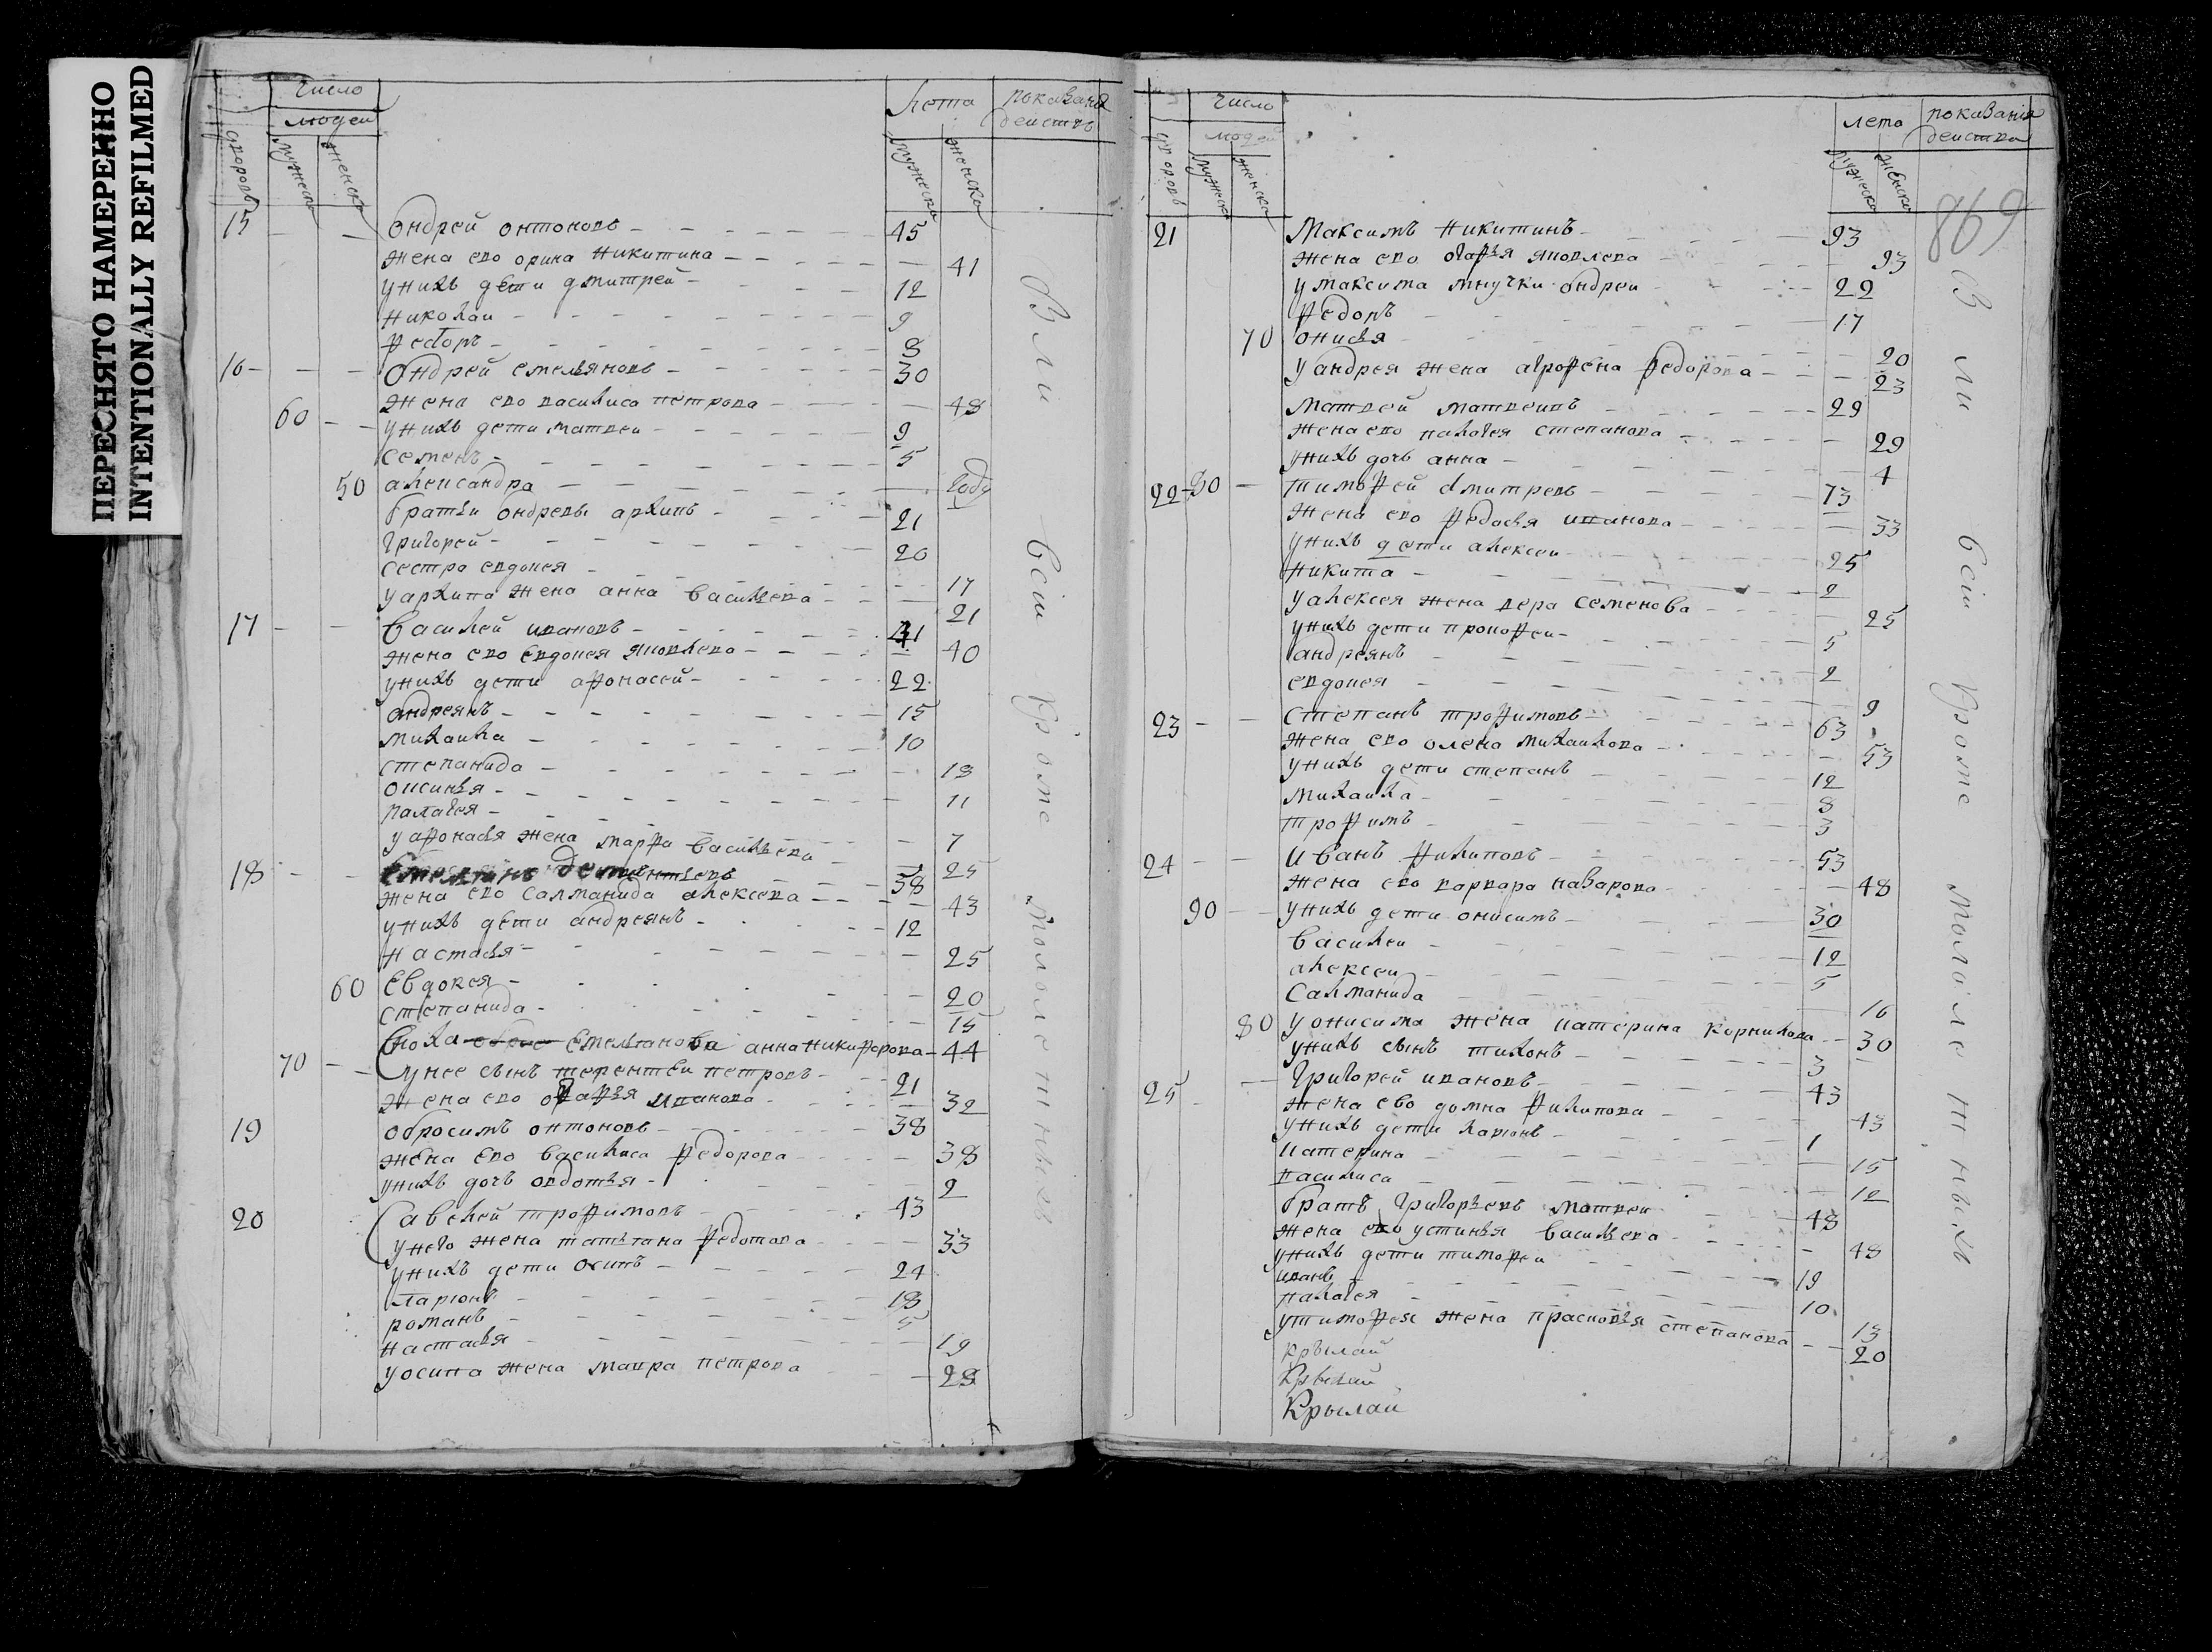 ПЕРЕСНЯТО НАМЕРЕННО
INTENTIONALLY REFILMED
число
людей
дворовъ
мужеска
женска
лета
мужеска
женска
показание
действъ
15 Ондрей онтоновъ 45
жена ево орина никитина 41
у нихъ дети дмитрей 12
николаи 9
федоръ 8
16 Ондрей емельяновъ 30
жена ево василиса петрова 48
60 у нихъ дети матвеи 9
семенъ 5
50 алеѯандра году
братьи ондревы архипъ 21
григорей 20
сестра евдокея 17
у архипа жена анна васильева 21
17 василей ивановъ 41
жена ево евдокея яковлева 40
у нихъ дети афонасей 22
андреянъ 15
михаила 10
степанида 18
оксинья 11
палагея 7
у афонасья жена марфа васильева 25
18 Емельянъ деменьтьевъ 58
жена ево салманида алексева 43
у нихъ дети андреянъ 12
настасья 25
60 евдокея 20
степанида 15
сноха емельянова анна никифорова 44
70 у нее сынъ терентеи петровъ 21
жена ево дарья иванова 32
19 обросимъ онтоновъ 38
жена ево василиса федорова 38
у нихъ дочь овдотья 2
20 савелей трофимовъ 43
у него жена татьяна федотова 33
у нихъ дети осипъ 24
ларионъ 18
романъ 5
настасья 19
у осипа жена мавра петрова 28
Вли всіи кроме мололетныхъ
число
людей
дворовъ
мужеска
женска
лета
мужеска
женска
показания
действа
869
21 Максимъ никитинъ 93
жена ево дарья яковлева 93
у максима внучки ондреи 22
федоръ 17
70 онисья 20
у андрея жена агрофена федорова 23
матвей матвеивъ 29
жена ево палагея степанова 29
у нихъ дочь анна 4
22 80 тимофей дмитревъ 73
жена ево федосья иванова 33
у нихъ дети алексеи 25
никита 2
у алексея жена вера семенова 25
у нихъ дети прокофеи 5
андреянъ 2
евдокея 9
23 степанъ трофимовъ 63
жена ево олена михаилова 53
у нихъ дети степанъ 12
михаила 8
трофимъ 3
24 Иванъ филиповъ 53
жена ево варвара назарова 48
90 у нихъ дети онисимъ 30
василеи 12
алексеи 5
салманида 16
80 у онисима жена катерина корнилова 30
у нихъ сынъ тихонъ 3
25 григорей ивановъ 43
жена ево домна филипова 43
у нихъ дети ларионъ 1
катерина 15
василиса 12
братъ григорьевъ матвеи 48
жена ево устинья васильева 48
у нихъ дети тимофеи 19
иванъ 10
палагея 13
у тимофея жена прасковья степанова 20
крылай
Крылай
Крылай
Вли всіи кроме мололетныхъ